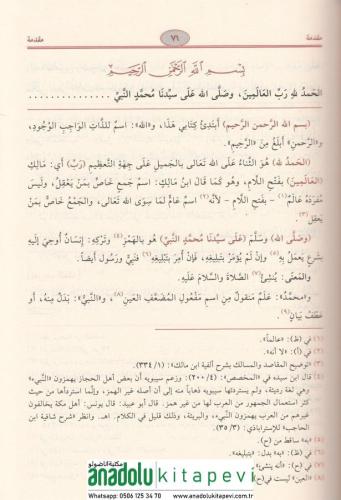 مقدمة
٧٦
مقدمة
بِسْمِ اللهِ الرَّحْمَنِ الرَّحِيمِ
الحَمدُ للهِ رَبِّ العَالَمِينَ، وصَلَّى الله عَلَى سيِّدنَا مُحمَّدٍ النَّبيِّ ........................
(بسم الله الرحمن الرحيم) أَبتَدِئُ كِتابِي هَذا، و«الله»: اسمٌ للذَّاتِ الوَاجِبِ الوُجُودِ،
و«الرَّحمنِ» أَبلَغُ مِنَ «الرَّحِيمِ».
(الحَمدُ للهِ) هُوَ الثَّناءُ عَلَى اللهِ تَعَالى بِالجَمِيلِ عَلَى جِهَةِ التَّعظِيمِ (رَبِّ) أي: مَالِكِ
(العَالَمِينَ) بِفَتحِ اللَّامِ، وهُو كَمَا قَالَ ابنُ مَالِكٍ: اسمُ جَمعٍ خَاصٌّ بِمَن يَعقِلُ، ولَيسَ
مُفرَدُهُ عَالَمٌ(١) – بِفَتحِ اللَّامِ – لأنَّه(٢) اسمٌ عَامٌّ لمَا سِوَى اللهِ تعَالَى، والجَمْعُ خَاصٌّ بمَنْ
يَعقِل(٣).
(وصَلَّى الله) وسَلَّمَ (عَلَى سيِّدنَا مُحمَّدٍ النَّبيِّ) هُو بالهَمْزِ(٤) وتَركِهِ: إِنسَانٌ أُوحِيَ إِلَيهِ
بِشَرعٍ يَعمَلُ بِهِ(٥) وإِنْ لَمْ يُؤمَرْ بِتَبلِيغِهِ، فَإِنْ أُمِرَ بِتَبلِيغِهِ(٦) فنَبِيٌّ ورسُولٌ أيضاً.
والمَعنَى: يُنشِئُ(٧) الصَّلَاةَ والسَّلامَ عَلَيهِ.
و«محمَّد»: عَلَمٌ مَنقُولٌ مِن اسمِ مَفعُولِ المُضعَّفِ العَينِ(٨)، و«النَّبيِّ»: بَدَلٌ مِنهُ، أَو
عَطفُ بَيانٍ(٩).
(١) في (ظ): «عالماً».
(٢) في (أ): «لا أنه».
(٣) «توضيح المقاصد والمسالك بشرح ألفية ابن مالك»: (١/ ٣٣٤).
(٤) قال ابن سيده في «المخصص»: (٤/ ٢٠٠): وزعم سيبويه أن بعض أهل الحجاز يهمزون «النَّبيء»
كثر استعمال الجمهور من لها من غير همز. قال أبو عبيد: قال يونس: أهل مكة يخالفون
غيرهم من العرب يهمزون «النبيء»، والبريئة، وذلك قليل في الكلام. اهـ. وانظر «شرح شافية ابن
الحاجب» للإستراباذي: (٣/ ٣٥).
(٥) «به» ساقط من (ح).
(٦) في (ظ): «به» بدل: «بتبليغه».
(٧) في (ح):
(٨) «العين» ليست في (ح).
مكتبة الناضولو
anadolu kitapevi
Whatsapp: 0506 125 34 70 www.anadolukitapevi.com